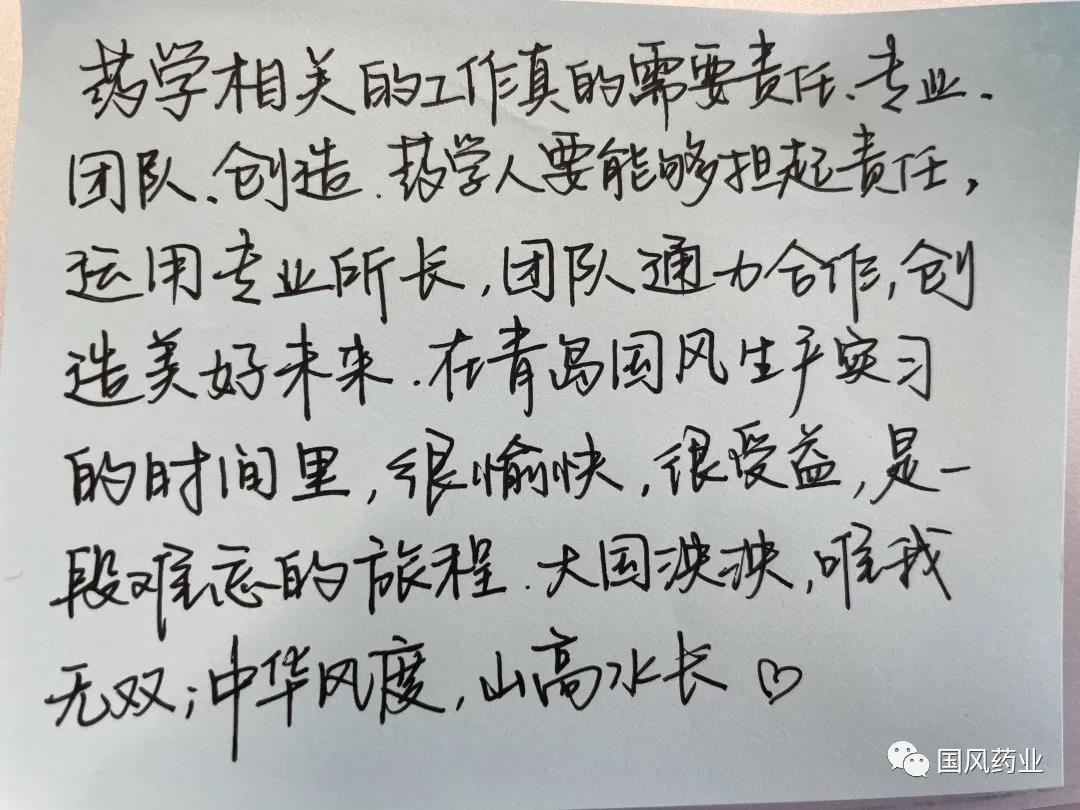 药学相关的工作真的需要责任、专业、
团队、创造.药学人要能够担起责任,
运用专业所长,团队通力合作,创
造美好未来.在青岛国风生产实习
的时间里,很愉快,很受益,是一
段难忘的旅程.大国泱泱,唯我
无双;中华风度,山高水长♡
国风药业